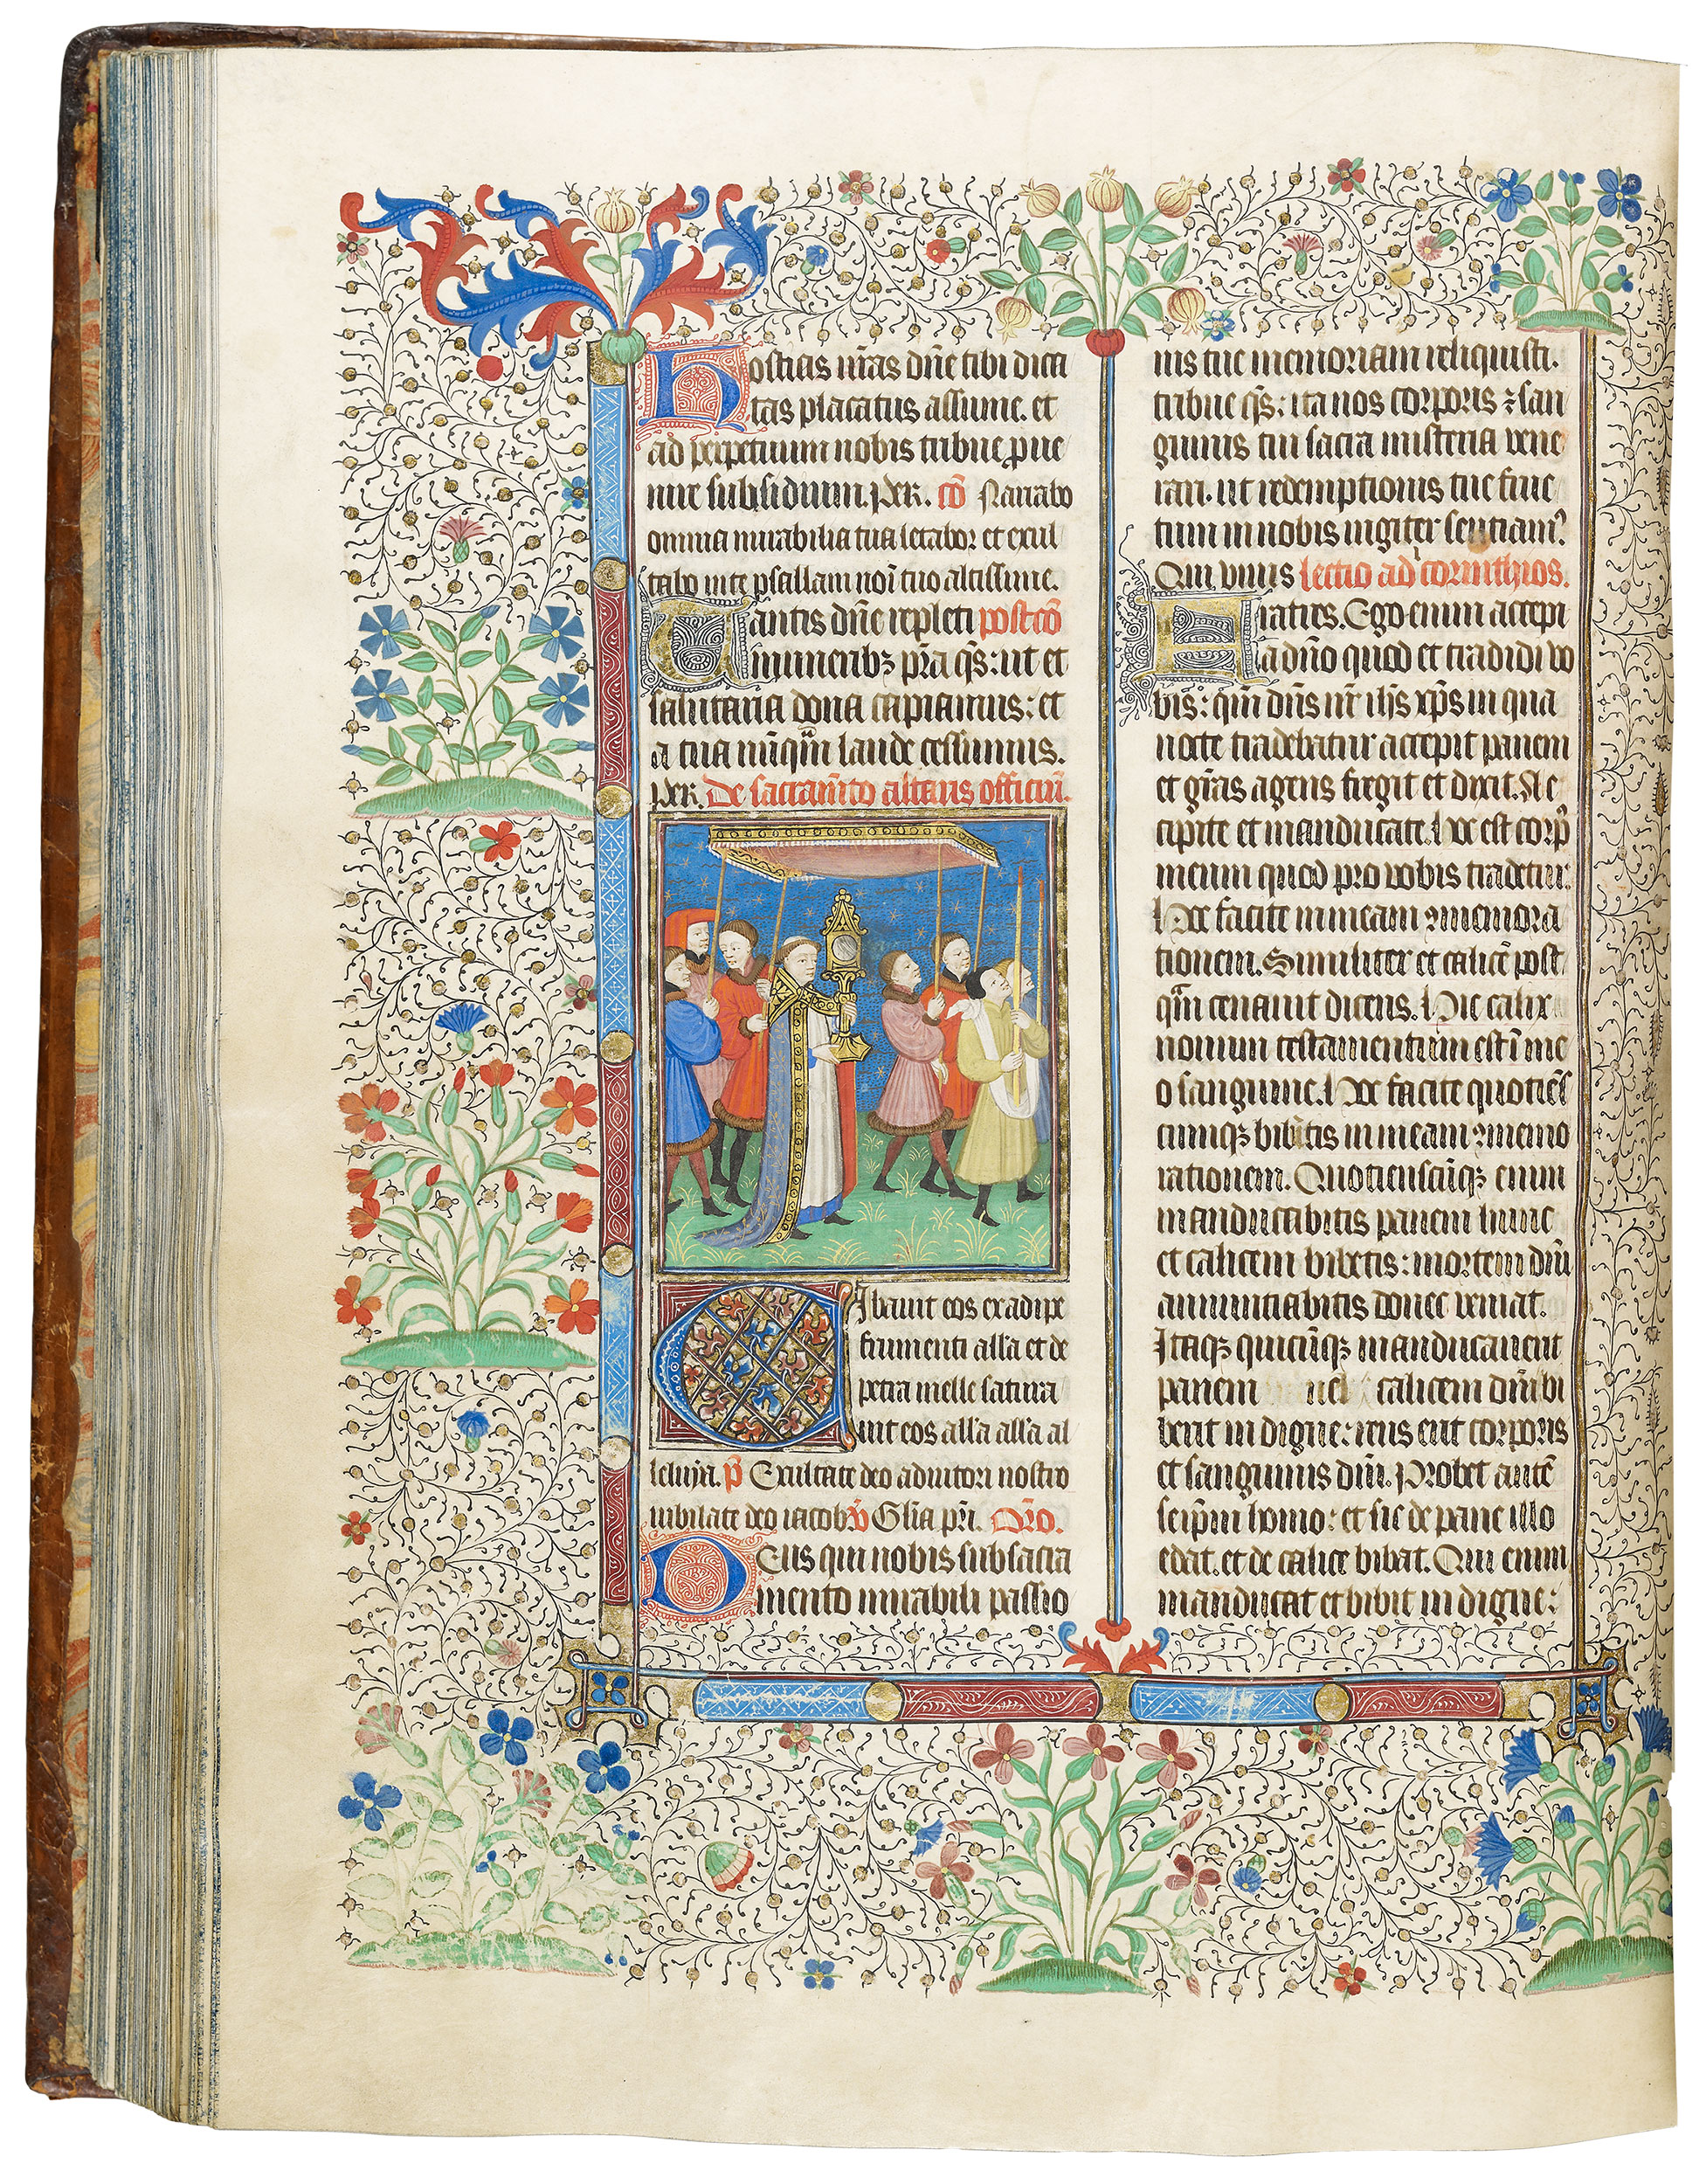 Hostias nr̃as dñe tibi dica
tas placatus assume. et
ad perpetuum nobis tribue ꝓue
nire subsidium. Per. cõ Narrabo
omnia mirabilia tua letabor et exul
tabo in te psallam noĩ tuo altissime.
Tantis dñe repleti postcõ
muneribꝫ pr̃a q̃s: ut et
salutaria dona capiamus: et
a tua nũqm̃ laude cessemus.
Per. De sacram̃to altaris officiũ.
Cibauit eos ex adipe
frumenti all'a et de
petra melle satura
uit eos all'a all'a al
leluya. p̃ Exultate deo adiutori nostro
iubilate deo iacob v̾ Gl'ia pr̃i. Or̃o.
Deus qui nobis sub sacra
mento mirabili passio
nis tue memoriam reliquisti.
tribue q̃s: ita nos corporis ⁊ san
guinis tui sacra misteria vene
rari. ut redemptionis tue fruc
tum in nobis iugiter sentiamꝰ.
Qui viuis lectio ad corinthios.
Fratres. Ego enim accepi
a dño quod et tradidi vo
bis: qm̃ dñs nr̃ ih̃s xp̃s in qua
nocte tradebatur accepit panem
et gr̃as agens fregit et dixit. Ac
cipite et manducate. Hoc est corpꝰ
meum quod pro vobis tradetur.
Hoc facite in meam ꝯmemora
tionem. Similiter et calicẽ post
qm̃ cenauit dicens. Hic calix
nouum testamentum est ĩ me
o sanguine. Hoc facite quotiẽs
cumqꝫ bibetis in meam ꝯmemo
rationem. Quotienscũqꝫ enim
manducabitis panem hunc
et calicem bibetis: mortem dñi
annuntiabitis donec veniat.
Itaqꝫ quicũqꝫ manducauerit
panem uel calicem dñi bi
berit indigne: reus erit corporis
et sanguinis dñi. Probet autẽ
seip̃m homo: et sic de pane illo
edat. et de calice bibat. Qui enim
manducat et bibit indigne: